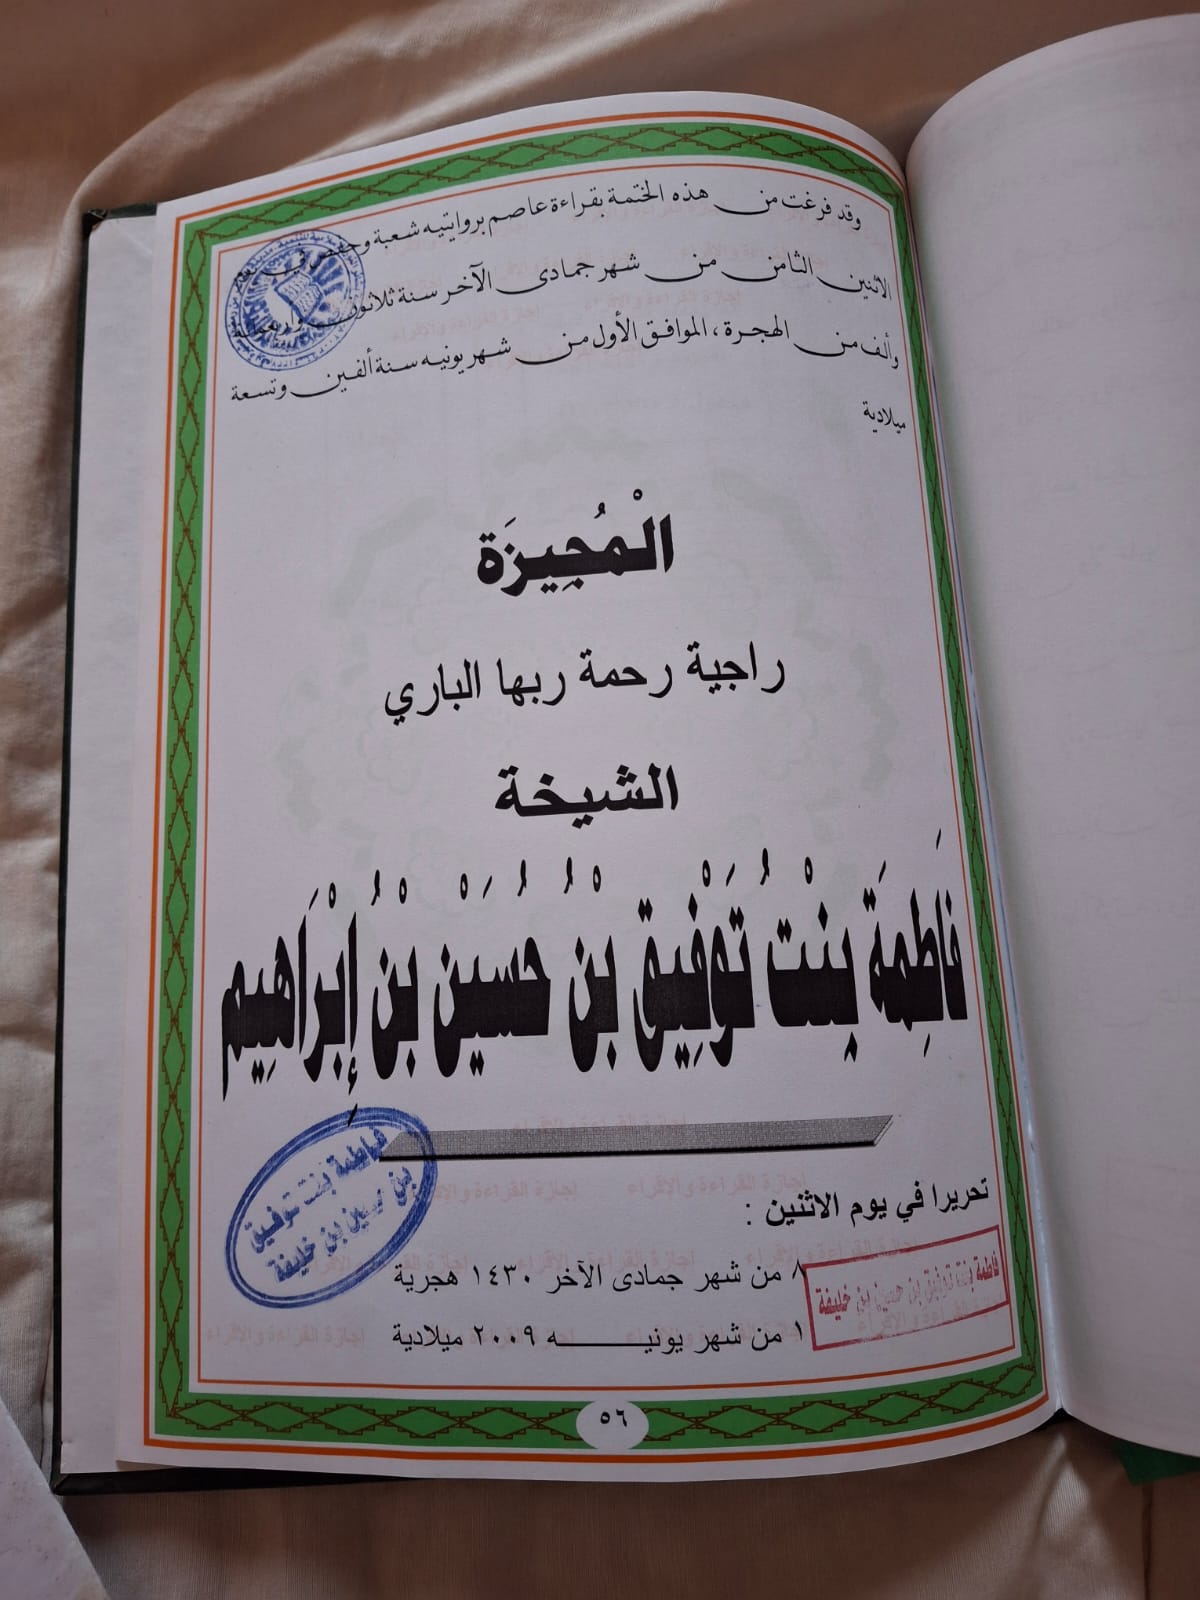 وقد فرغت من هذه الختمة بقراءة عاصم بروايتيه شعبة وحفص في
الاثنين الثامن من شهر جمادى الآخر سنة ثلاثون وأربعمائة
وألف من الهجرة، الموافق الأول من شهر يونيه سنة ألفين وتسعة
ميلادية
الْمُجِيزَة
راجية رحمة ربها الباري
الشيخة
فَاطِمَةَ بِنْتُ تَوْفِيق بْنُ حُسَيْن بْنُ إِبْرَاهِيم
فاطمة بنت توفيق
بن حسين بن خليفة
تحريرا في يوم الاثنين :
٨ من شهر جمادى الآخر ١٤٣٠ هجرية
فاطمة بنت توفيق بن حسين بن خليفة
١ من شهر يونيـــــه ٢٠٠٩ ميلادية
إجازة القراءة والإقراء
٥٦